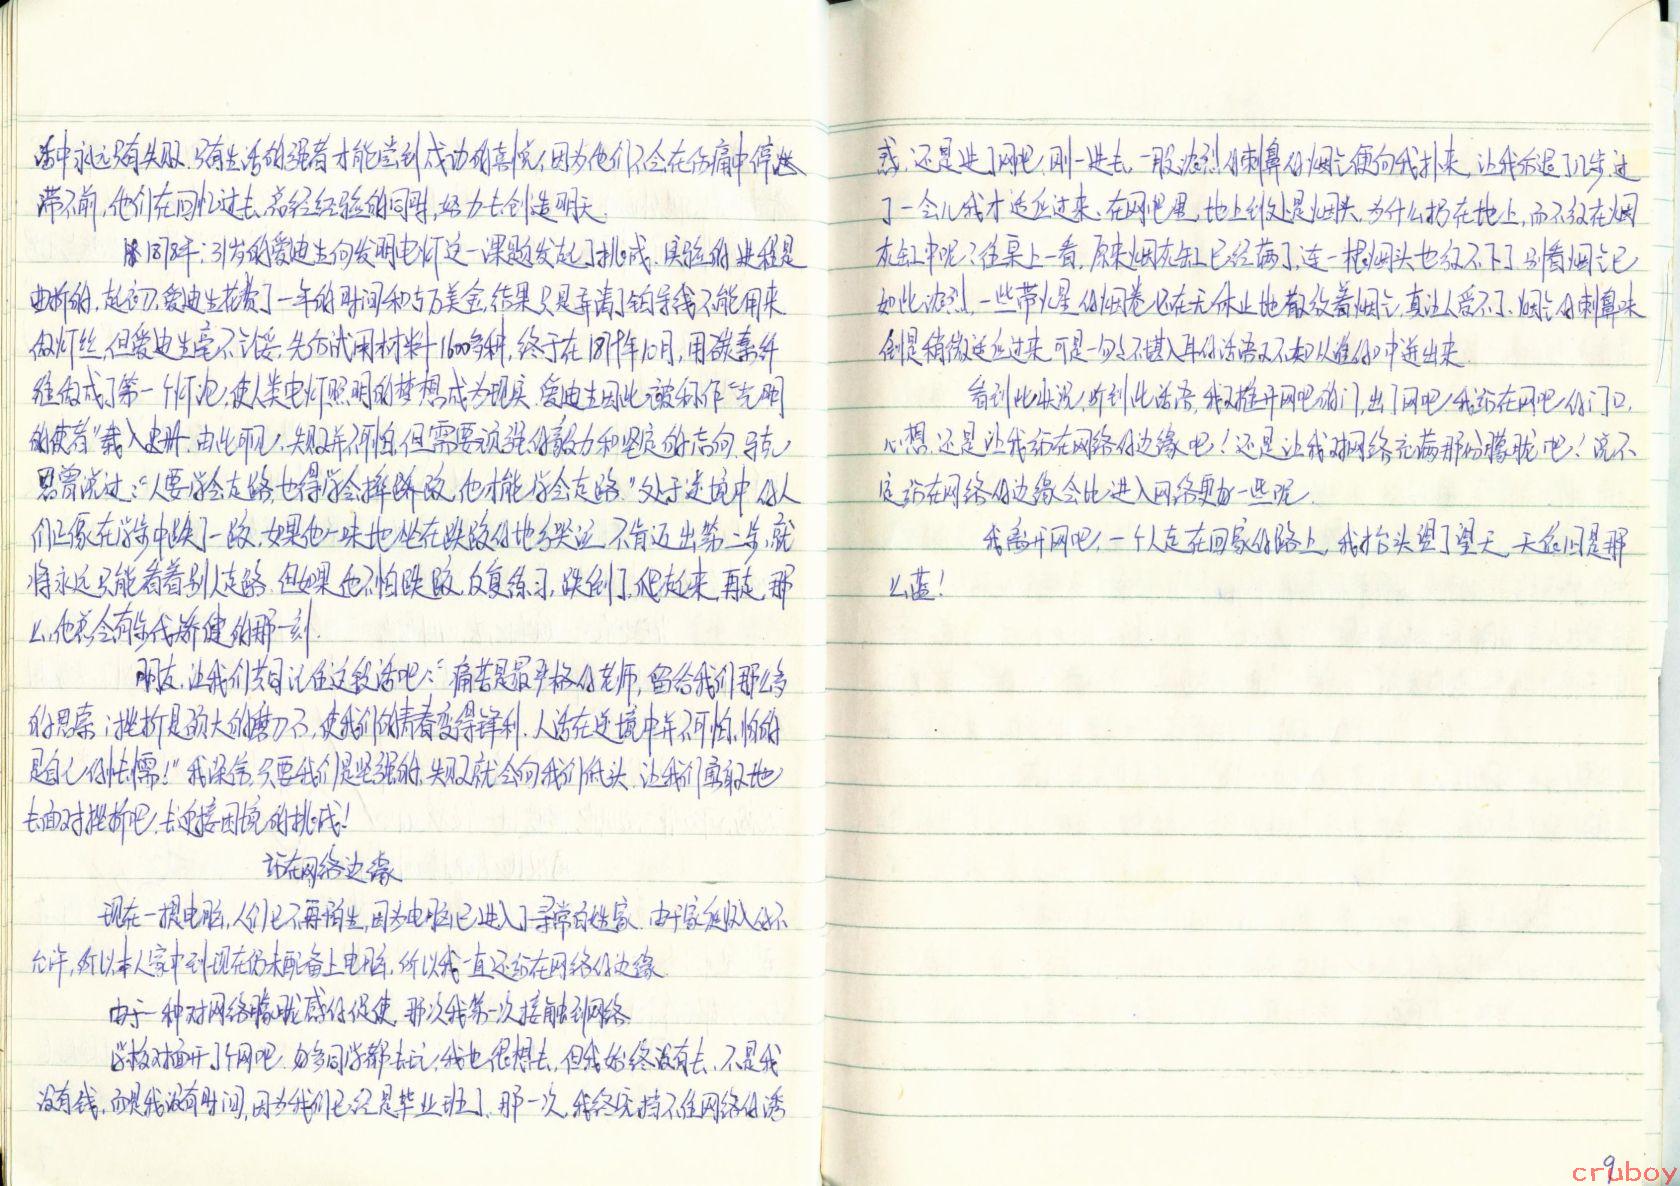 活中永远只有失败。只有生活的强者才能尝到成功的喜悦，因为他们不会在伤痛中停滞
滞不前，他们在回忆过去，总经经验的同时，努力去创造明天。
1878年，31岁的爱迪生向发明电灯这一课题发起了挑战。实验的进程是
曲折的。起初，爱迪生花费了一年的时间和5万美金，结果只是弄清了铂导线不能用来
做灯丝，但爱迪生毫不记妥，先后试用材料1600多种，终于在1879年10月，用碳素纤
维做成了第一个灯泡，使人类电灯照明的梦想成为现实。爱迪生因此被称作“光明
的使者”载入史册。由此可见，失败并不可怕，但需要顽强的毅力和坚定的志向。马克
思曾说过：“人要学会走路，也得学会摔跤，他才能学会走路。”处于逆境中的人
们正像在学步中跌了一跤，如果他一味地坐在跌跤的地方哭泣，不肯迈出第二步，就
将永远只能看着别人走路。但如果他不怕跌跤，反复练习，跌倒了，爬起来，再走，那
么，他总会有步伐矫健的那一刻。
朋友，让我们共同记住这段话吧：“痛苦是最严格的老师，留给我们那么多
的思索；挫折是硕大的磨刀石，使我们的青春变得锋利。人活在逆境中并不可怕，怕的
是自己的怯懦！”我深信，只要我们是坚强的，失败就会向我们低头。让我们勇敢地
去面对挫折吧，去迎接困境的挑战！
站在网络边缘
现在一提电脑，人们已不再陌生，因为电脑已进入了寻常百姓家。由于家庭收入的不
允许，所以本人家中到现在仍未配备上电脑，所以我一直还站在网络的边缘。
由于一种对网络朦胧感的促使，那次我第一次接触到网络。
学校对面开了个网吧，好多同学都去玩，我也很想去，但我始终没有去，不是我
没有钱，而是我没有时间，因为我们已经是毕业班了。那一次，我终究挡不住网络的诱
惑，还是进了网吧，刚一进去，一股浓烈的刺鼻的烟气便向我扑来，让我后退了几步，过
了一会儿我才适应过来。在网吧里，地上到处是烟头，为什么扔在地上，而不放在烟
灰缸中呢？往桌上一看，原来烟灰缸已经满了，连一根烟头也放不下了。别看烟气已
如此浓烈，一些带火星的烟卷还在无休止地散放着烟气，真让人受不了。烟气的刺鼻味
倒是稍微适应过来，可是一句句不堪入耳的话语又不知从谁的口中迸出来。
看到此状况，听到此话语，我又推开网吧的门，出了网吧，我站在网吧的门口，
心想，还是让我站在网络的边缘吧！还是让我对网络充满那份朦胧吧！说不
定站在网络的边缘会比进入网络更好一些呢。
我离开网吧，一个人走在回家的路上，我抬头望了望天，天依旧是那
么蓝！
9
cruboy